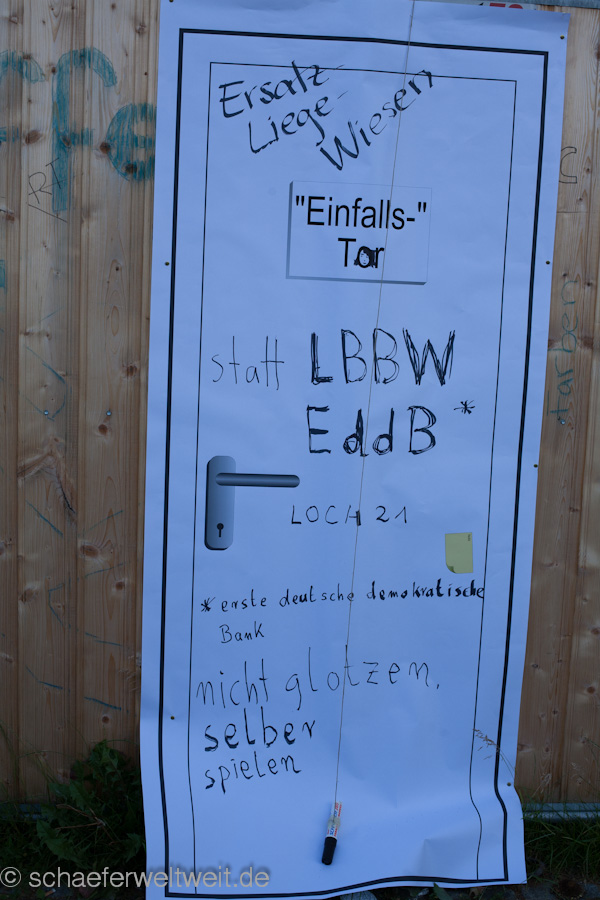 ffe
ART
Ersatz-
Liege-
Wiesen
"Einfalls-"
Tor
statt LBBW
EddB*
LOCH 21
farben
* erste deutsche demokratische
Bank
nicht glotzen,
selber
spielen
© schaeferweltweit.de